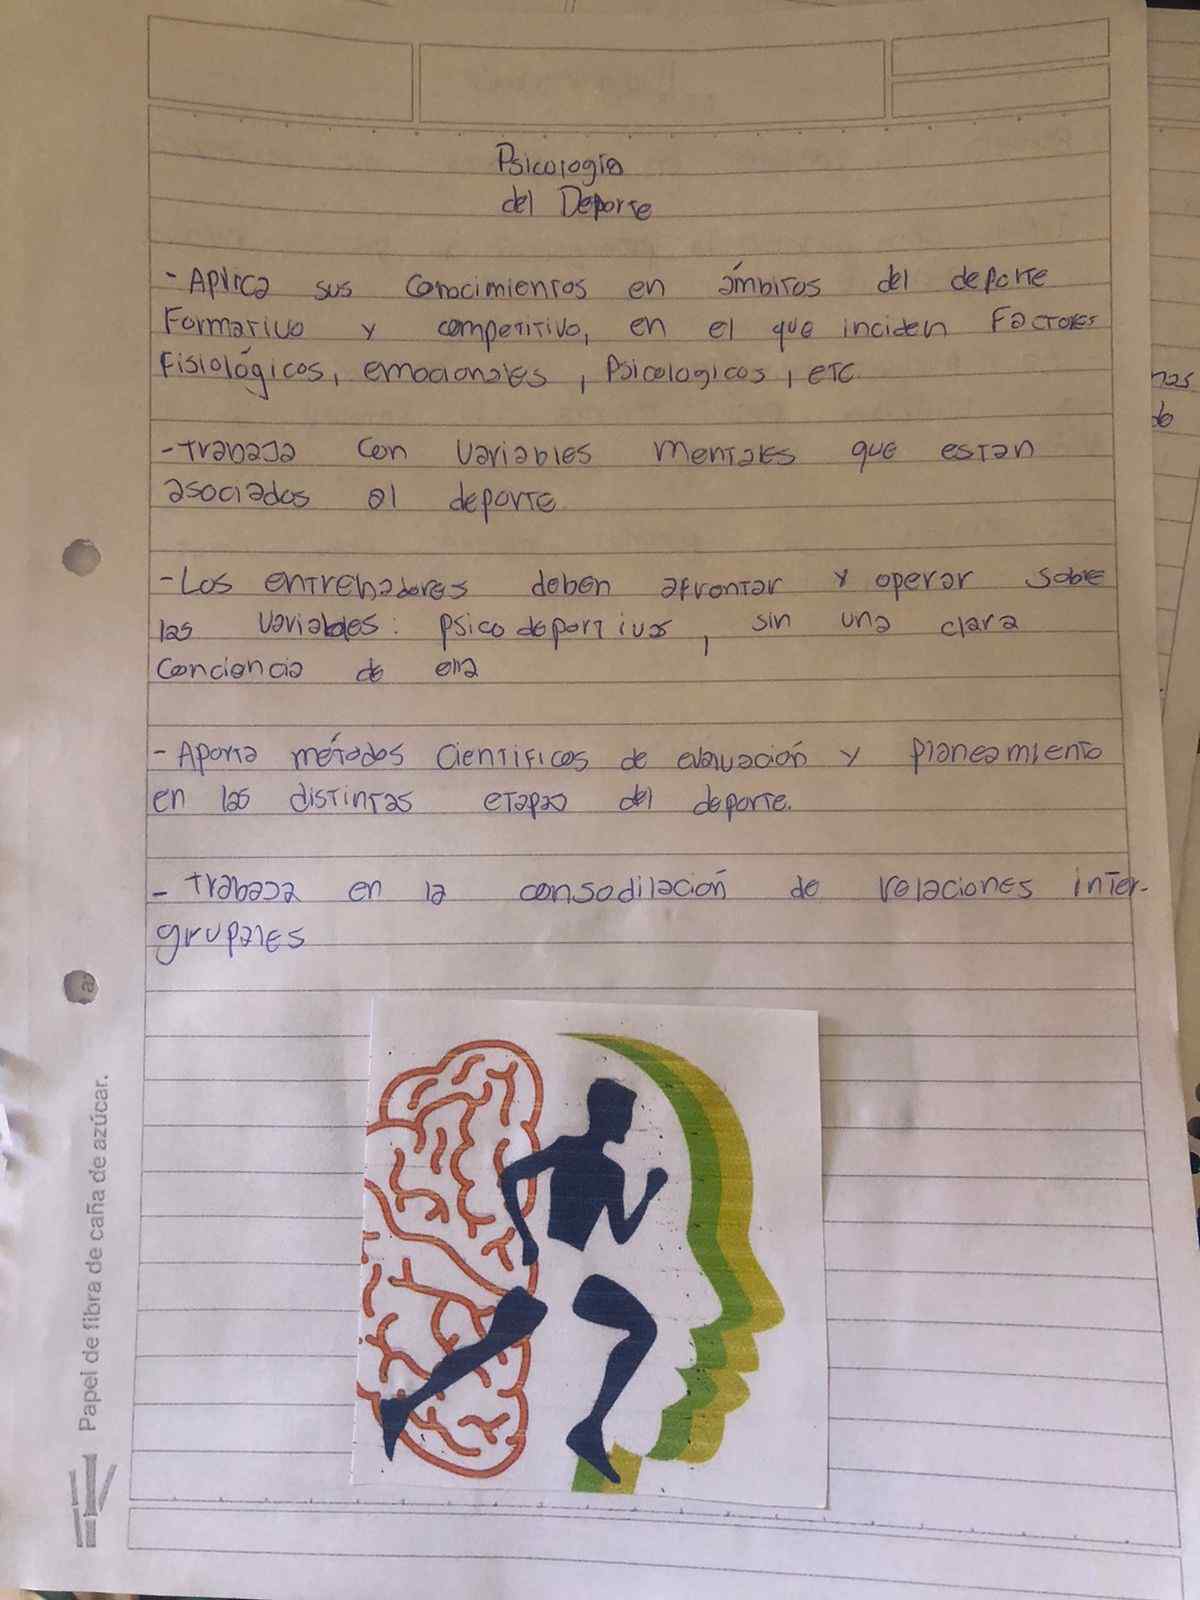 Psicología
del Deporte
- Aplica sus conocimientos en ámbitos del deporte
Formativo y competitivo, en el que inciden Factores
Fisiológicos, emocionales, Psicologicos, etc
- Trabaja con variables mentales que estan
asociados al deporte
- Los entrenadores deben afrontar y operar sobre
las variables: psicodeportivas, sin una clara
conciencia de ella
- Aporta métodos cientificos de evaluación y planeamiento
en las distintas etapas del deporte.
- Trabaja en la consodilación de relaciones inter-
grupales
nas
de
Papel de fibra de caña de azúcar.